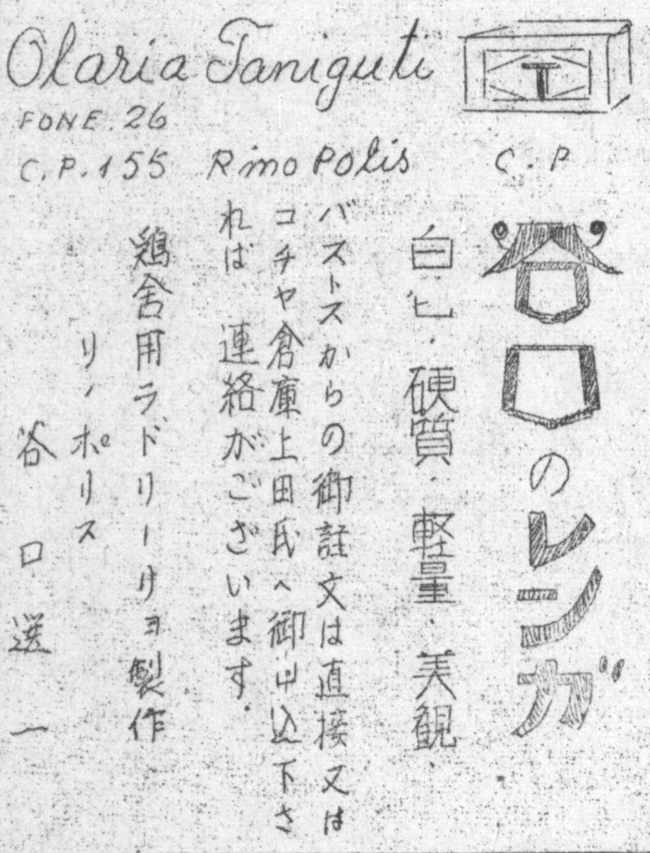 Olaria Taniguti
T
FONE. 26
C.P. 155 Rinopolis C.P
谷口のレンガ
白色・硬質・軽量・美観・
バストスからの御註文は直接又は
コチヤ倉庫上田氏へ御申込下さ
れば 連絡がございます.
鶏舎用ラドリーリヨ製作
リノポリス
谷口選一